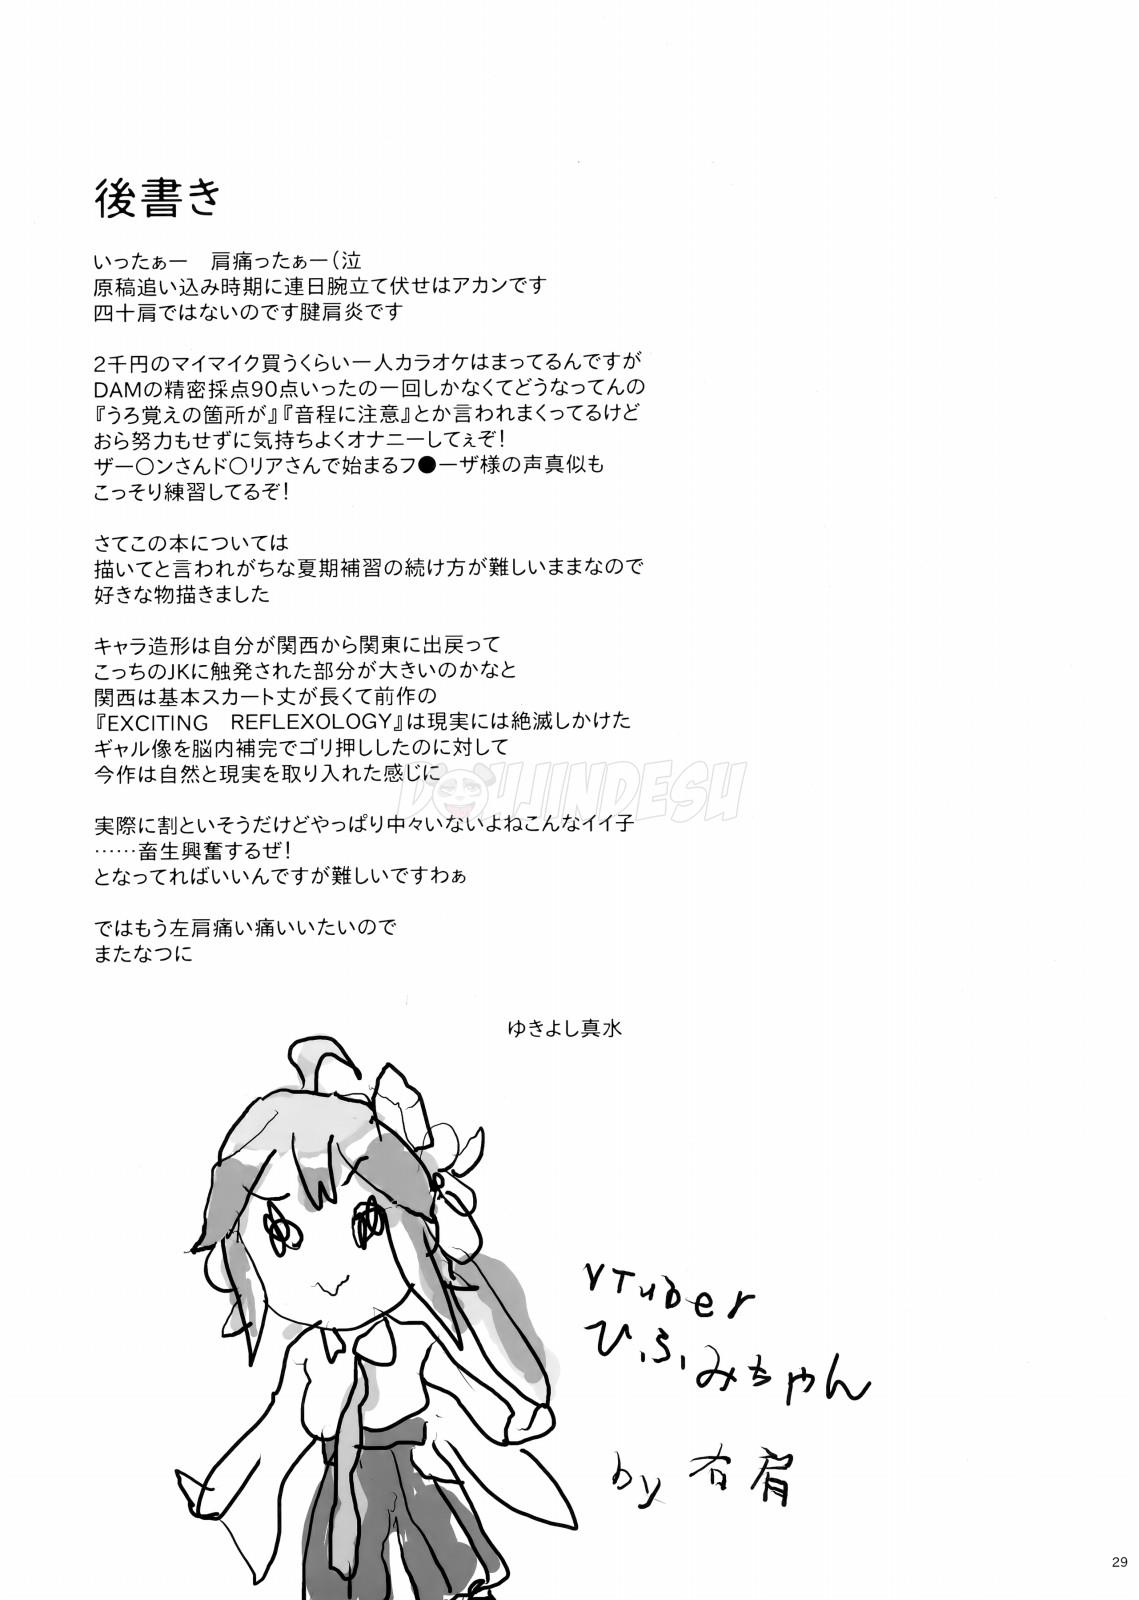 後書き
いったぁー　肩痛ったぁー（泣
原稿追い込み時期に連日腕立て伏せはアカンです
四十肩ではないのです腱肩炎です
2千円のマイマイク買うくらい一人カラオケはまってるんですが
DAMの精密採点90点いったの一回しかなくてどうなってんの
『うろ覚えの箇所が』『音程に注意』とか言われまくってるけど
おら努力もせずに気持ちよくオナニーしてぇぞ！
ザー〇ンさんド〇リアさんで始まるフ●ーザ様の声真似も
こっそり練習してるぞ！
さてこの本については
描いてと言われがちな夏期補習の続け方が難しいままなので
好きな物描きました
キャラ造形は自分が関西から関東に出戻って
こっちのJKに触発された部分が大きいのかなと
関西は基本スカート丈が長くて前作の
『EXCITING　REFLEXOLOGY』は現実には絶滅しかけた
ギャル像を脳内補完でゴリ押ししたのに対して
今作は自然と現実を取り入れた感じに
DOUJINDESU
実際に割といそうだけどやっぱり中々いないよねこんなイイ子
……畜生興奮するぜ！
となってればいいんですが難しいですわぁ
ではもう左肩痛い痛いいたいので
またなつに
ゆきよし真水
VTuber
ひふみちゃん
by 右肩
29